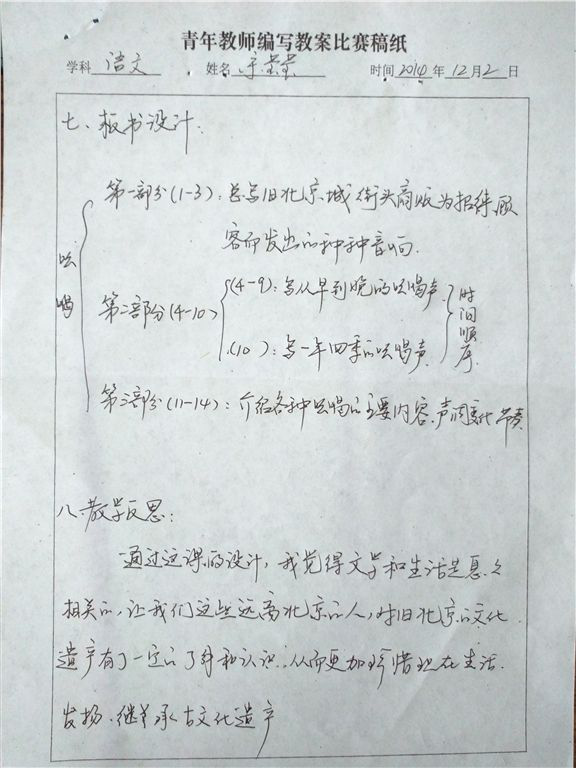 青年教师编写教案比赛稿纸
学科 语文 姓名 时间 2014 年 12 月 2 日
七、板书设计:
吆喝
第一部分(1-3):总写旧北京城街头商贩为招待顾
客而发出的种种音响.
第二部分(4-10)
(4-9):写从早到晚的吆喝声
(10):写一年四季的吆喝声
时间顺序
第三部分(11-14):介绍各种吆喝的主要内容、声调变化、节奏
八、教学反思:
通过这课的设计,我觉得文学和生活是息息
相关的,让我们这些远离北京的人,对旧北京的文化
遗产有了一定的了解和认识,从而更加珍惜现在生活.
发扬、继承古文化遗产